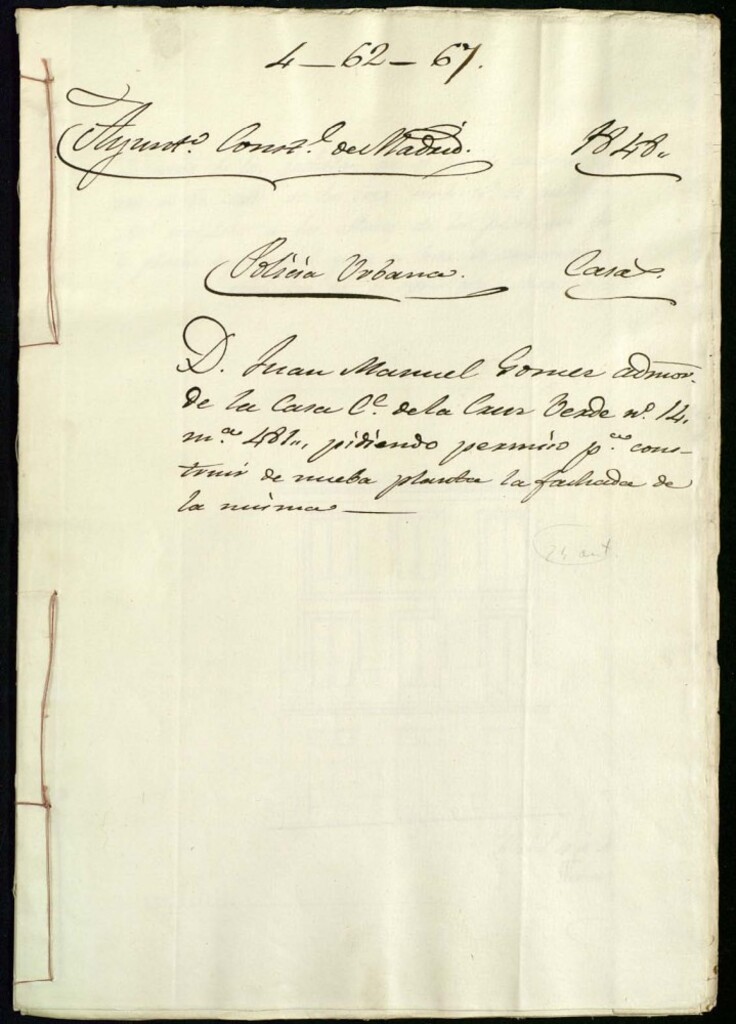 4 — 62 — 67.
Ayunt.º Const.l de Madrid. 1848.
Policia Urbana. Casas.
D. Juan Manuel Gomez admor.
de la Casa C.e de la Cruz Verde nº. 14.
m.a 481,, pidiendo permiso p.a cons-
truir de nueba planta la fachada de
la misma —